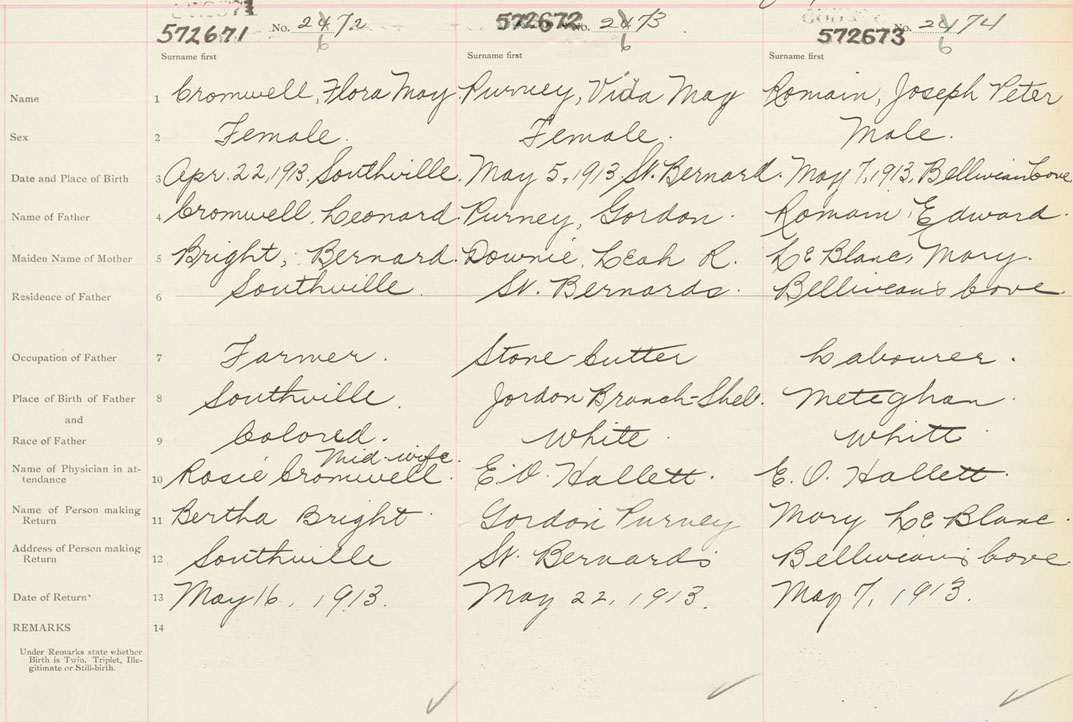 572671 No. 2472 6
572672 No. 2473 6
572673 No. 2474 6
Surname first Surname first Surname first
Name 1 Cromwell, Flora May Purney, Vida May Romain, Joseph Peter
Sex 2 Female. Female. Male.
Date and Place of Birth 3 Apr. 22, 1913, Southville. May 5, 1913, St. Bernard. May 7, 1913, Belliveau Cove
Name of Father 4 Cromwell, Leonard. Purney, Gordon. Romain, Edward.
Maiden Name of Mother 5 Bright, Bernard. Downie, Leah R. Le Blanc, Mary.
Residence of Father 6 Southville. St. Bernards. Belliveau's Cove.
Occupation of Father 7 Farmer. Stone-Cutter Labourer.
Place of Birth of Father 8 Southville. Jordon Branch-Shel. Meteghan.
and
Race of Father 9 Colored. White. White.
Name of Physician in at-
tendance 10 Rosie Cromwell. Mid-wife. E. O. Hallett. E. O. Hallett.
Name of Person making
Return 11 Bertha Bright. Gordon Purney Mary Le Blanc.
Address of Person making
Return 12 Southville St. Bernards Belliveau's Cove
Date of Return 13 May 16, 1913. May 22, 1913. May 7, 1913.
REMARKS 14
Under Remarks state whether
Birth is Twin, Triplet, Ille-
gitimate or Still-birth.